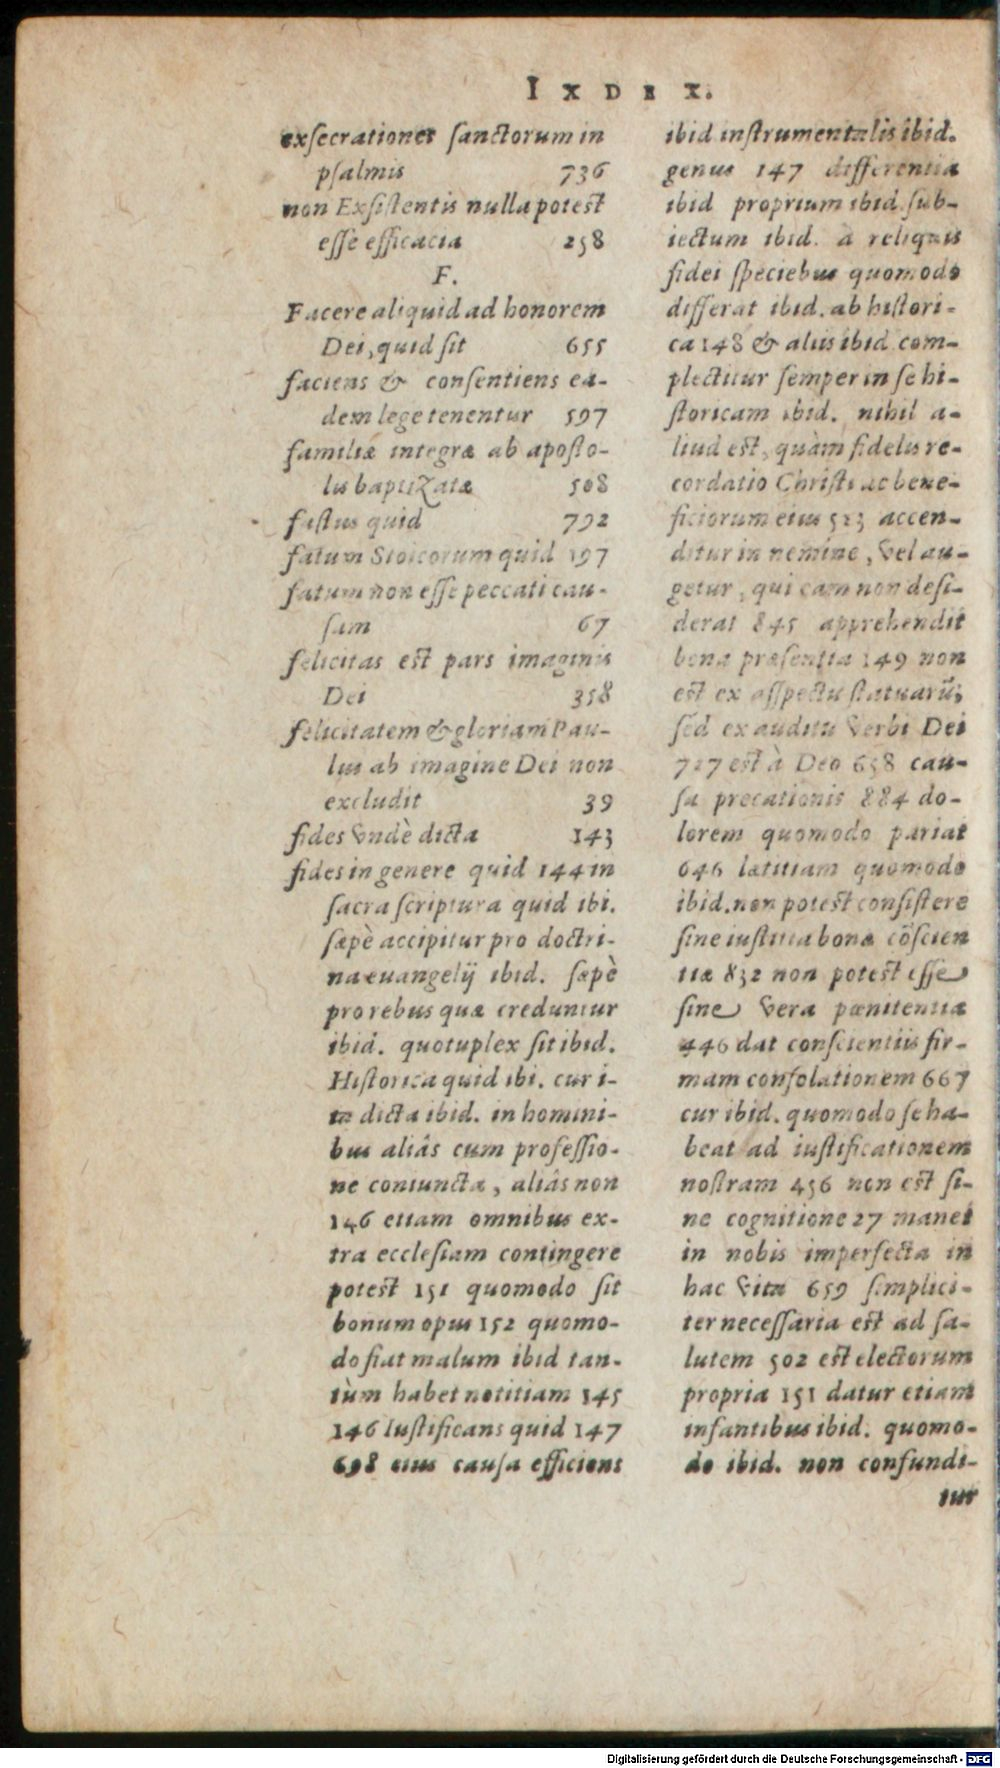 Ixdex.
exsecrationes sanctorum in
psalmis 736
non Exsistentis nulla potest
esse efficacia 258
F.
Facere aliquid ad honorem
Dei, quid sit 655
faciens & consentiens ea-
dem lege tenentur 597
familiæ integræ ab aposto-
lis baptizatæ 508
fastus quid 792
fatum Stoicorum quid 197
fatum non esse peccati cau-
sam 67
felicitas est pars imaginis
Dei 358
felicitatem & gloriam Pau-
lus ab imagine Dei non
excludit 39
fides vndè dicta 143
fides in genere quid 144 in
sacra scriptura quid ibi.
sæpè accipitur pro doctri-
na euangelij ibid. sæpè
pro rebus quæ creduntur
ibid. quotuplex sit ibid.
Historica quid ibi. cur i-
ta dicta ibid. in homini-
bus aliâs cum professio-
ne coniuncta, aliâs non
146 etiam omnibus ex-
tra ecclesiam contingere
potest 151 quomodo sit
bonum opus 152 quomo-
do fiat malum ibid tan-
tùm habet notitiam 145
146 Iustificans quid 147
698 eius causa efficiens
ibid instrumentalis ibid.
genus 147 differentia
ibid proprium ibid. sub-
iectum ibid. à reliquis
fidei speciebus quomodo
differat ibid. ab histori-
ca 148 & aliis ibid. com-
plectitur semper in se hi-
storicam ibid. nihil a-
liud est, quàm fidelis re-
cordatio Christi ac bene-
ficiorum eius 523 accen-
ditur in nemine, vel au-
getur, qui eam non desi-
derat 845 apprehendit
bona præsentia 149 non
est ex asspectu statuarũ;
sed ex auditu verbi Dei
727 est à Deo 658 cau-
sa precationis 884 do-
lorem quomodo pariat
646 lætitiam quomodo
ibid. non potest consistere
sine iustitia bonæ cõscien
tiæ 832 non potest esse
sine vera pœnitentia
446 dat conscientiis fir-
mam consolationem 667
cur ibid. quomodo se ha-
beat ad iustificationem
nostram 456 non est si-
ne cognitione 27 manet
in nobis imperfecta in
hac vita 659 simplici-
ter necessaria est ad sa-
lutem 502 est electorum
propria 151 datur etiam
infantibus ibid. quomo-
do ibid. non confundi-
tur
Digitalisierung gefördert durch die Deutsche Forschungsgemeinschaft - DFG